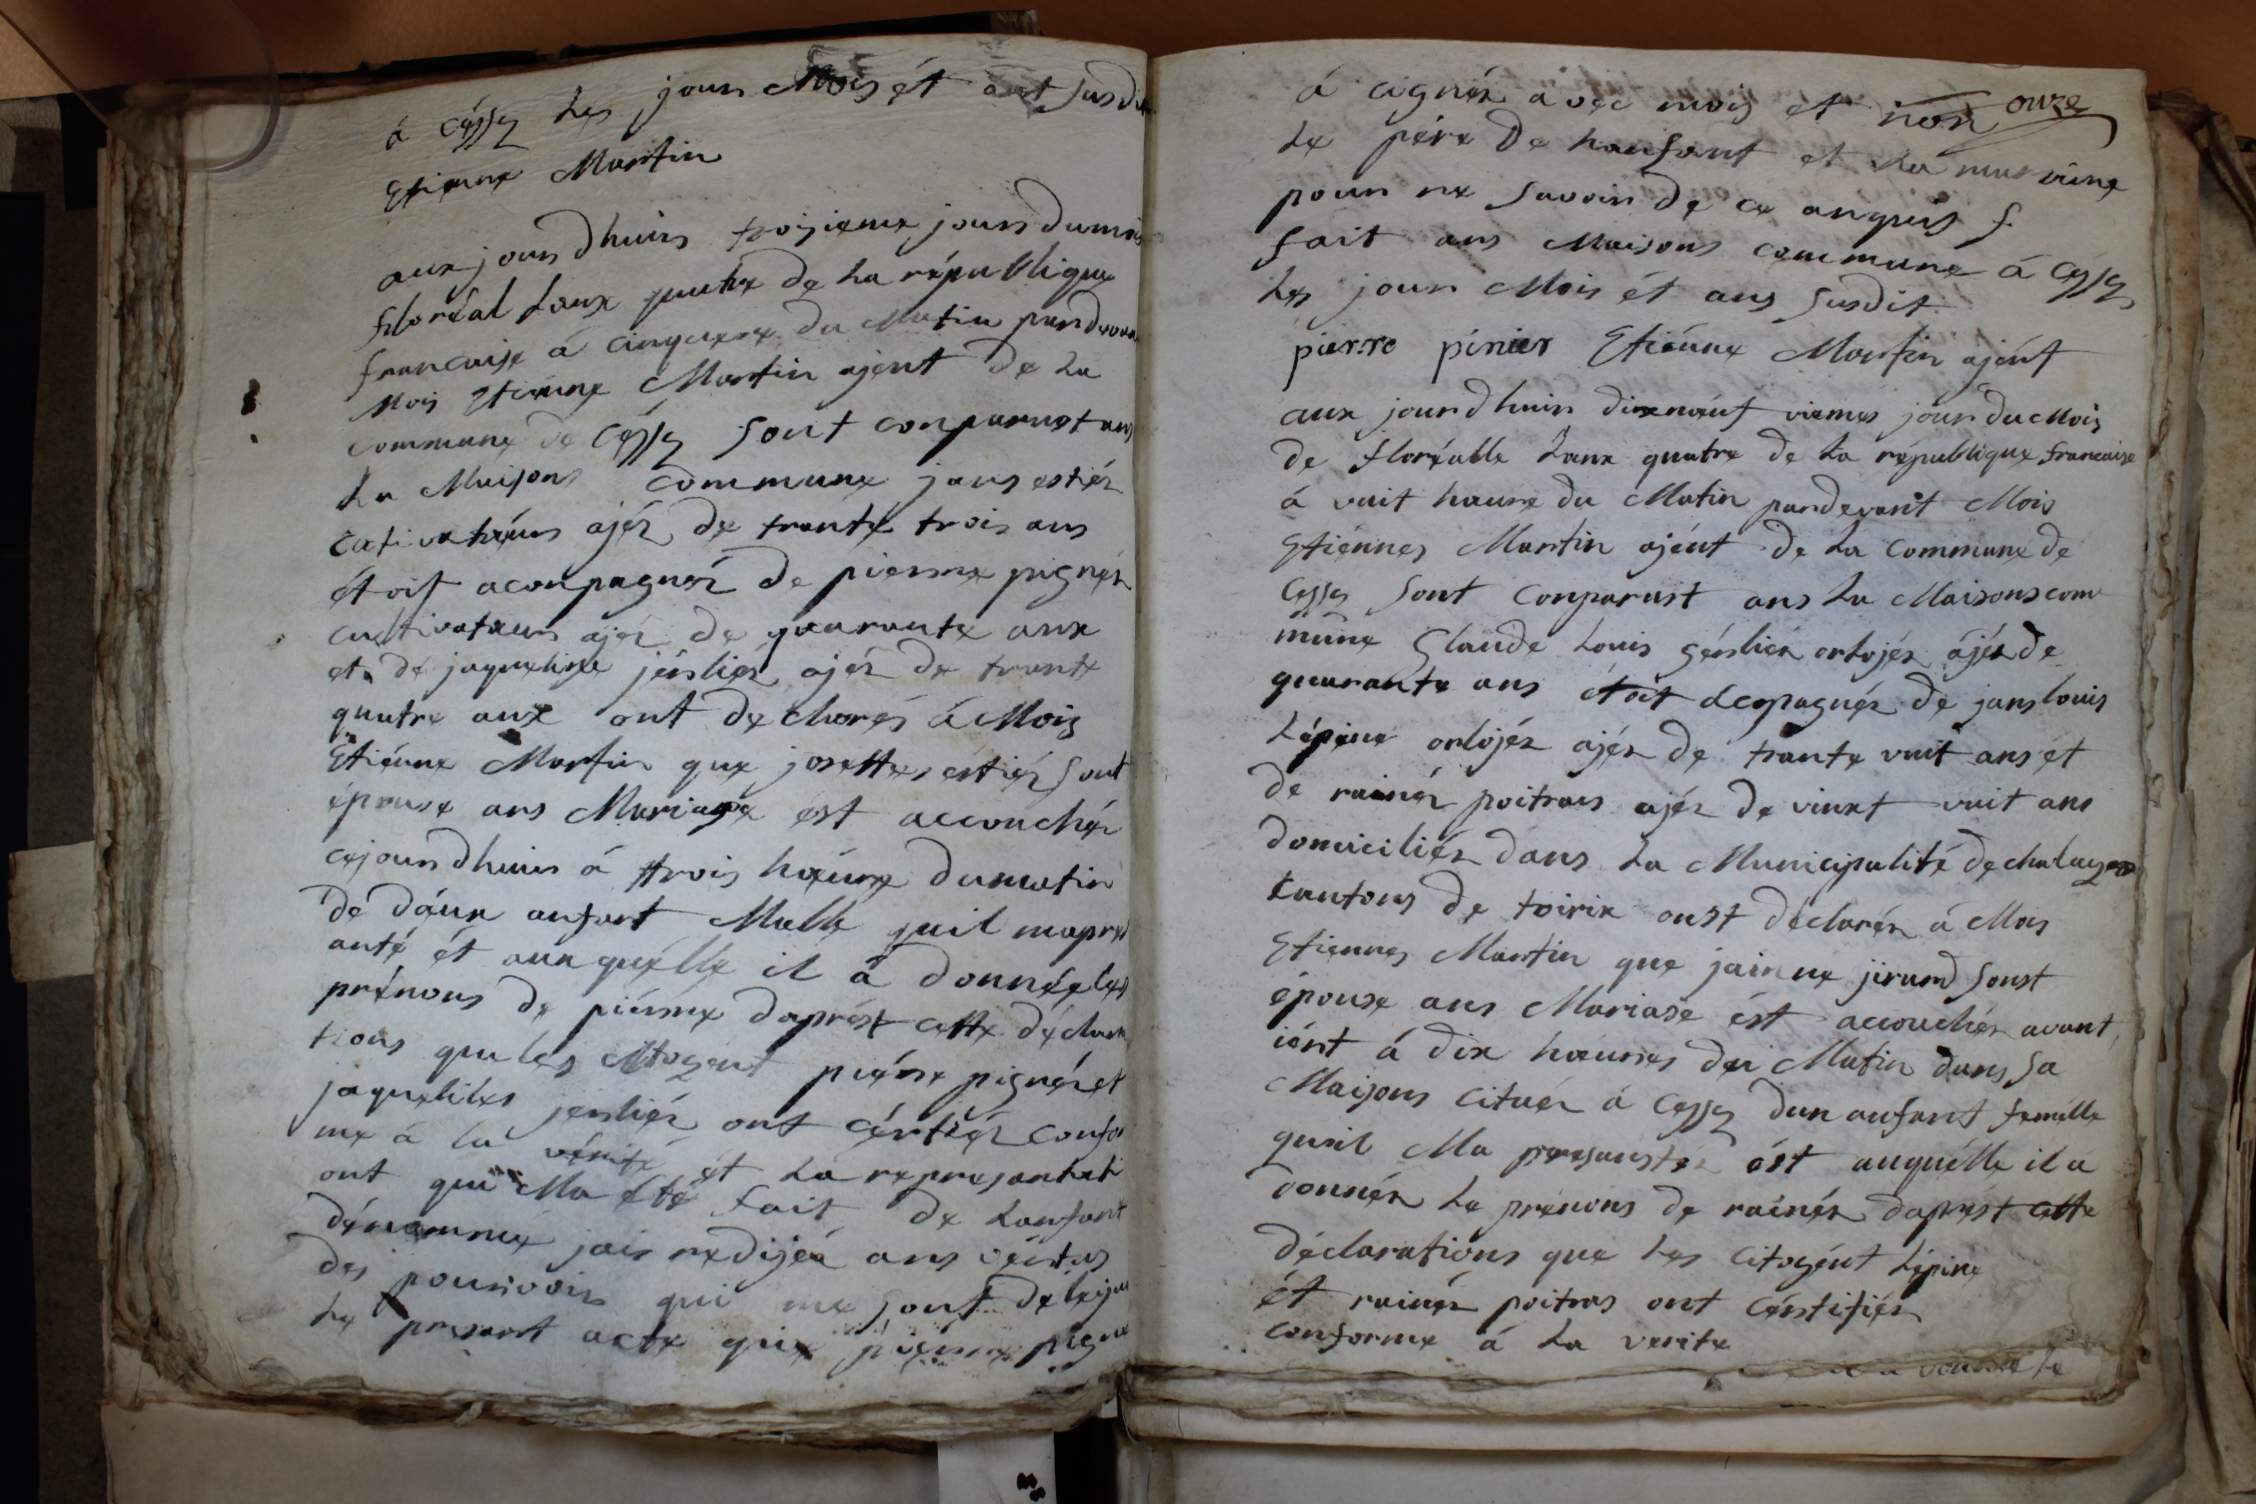 á céssy les jour Mois ét ant susdit
Etienne Martin
aux jourdhuis troisieme jours dumois
floréal Laux quatre de La républigue
francaise á cinqueure du Matin pardevant
Mois Etiénne Martin ajent de La
commune de Céssy sont comparust ans
La Maisons commune jans estiér
cativateurs ajér de trante trois ans
étoit aconpagnér de pierre pignér
cultivateurs ajér de quarante aux
et de jaqueline jérliér ajér de trante
quatre aux ont dechorés á Mois
Etiénne Martin que josettes estiér sont
épouse ans Mariage est accouchér
cejourdhuis á ttrois heéure dumatin
de daúx anfant Malle quil mapres
anté ét aux quélle il á donnée les
prénons de piérre daprést cette déclara
tions que les citoyent piérre pignér et
jaquelines jerliér ont cértiér confor
me á la vérité ét La represantati
ont qui Ma été fait de Lanfant
dénommé jais redijéa ans vértus
des pouvoirs qui me sont deleju
Le present acte qix piérre pigne
onze
á cignér avec mois et non
Le pére De Lanfant et La marraine
pour ne savoir de ce anquis f.
fait ans Maisons commune á Céssy
Les jour Mois ét ans susdit
pierre pinier Etiéune Martin ajént
aux jourdhuir dixneuf viemes jour du Mois
de floréalle Lanx quatre de La républiqux francaise
á vuit heure du Matin pardevant Mois
Etiénnes Martin ajént de La Commune de
Cessy sont comparust ans La Maisons com
mune Glaude Louis gérliér orlojér ájér de
quarante ans étoit acopagnér de jans louis
Lépine orlojér ajér de trante vuit ans et
de rainér poitras ajér de vinxt vuit ans
domiciliér dans La Municipalité de chalay
Cantons de toirix onst déclarér á Mois
Etiennes Martin que jainne jirard sonst
épouse ans Mariase ést accouchér avant
iért á dix heures du Matin dans sa
Maisons cituér á Cessy dun anfant femélle
quil Ma presanster ést auquélle il a
donnér Le prenons de rainér daprést cette
déclarations que Les citoyént Lépine
ét rainér poitras ont cérstifiér
conforme á La verite